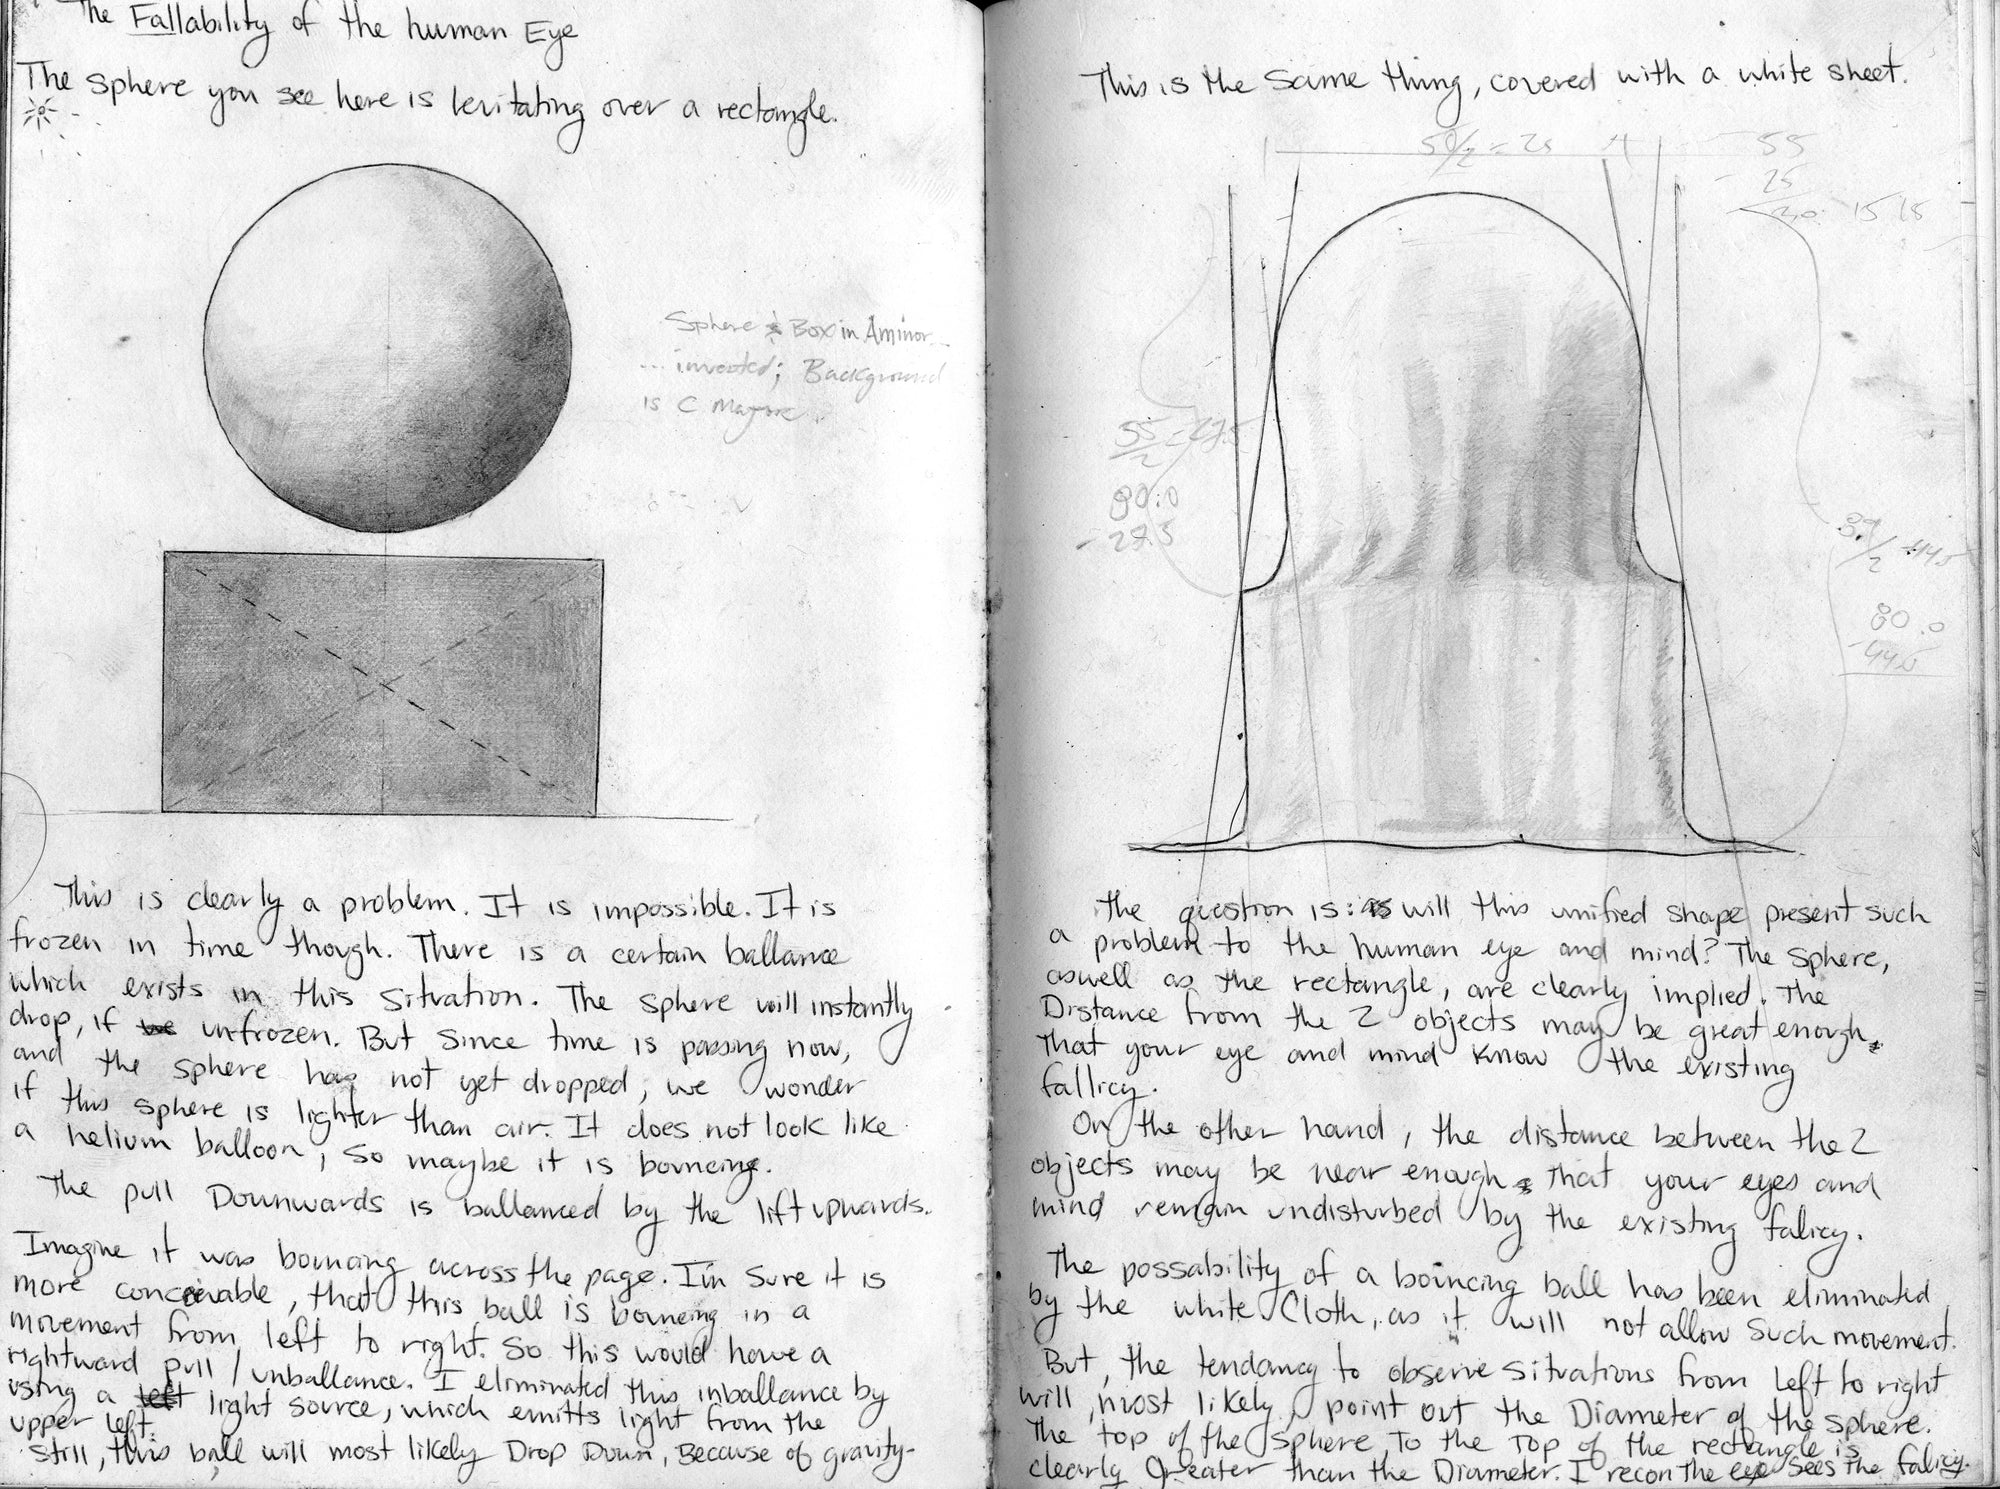 The Fallability of the human Eye
The sphere you see here is levitating over a rectangle.
Sphere & Box in Aminor...
... inverted; Background
is C Mayore
This is clearly a problem. It is impossible. It is
frozen in time though. There is a certain ballance
which exists in this situation. The sphere will instantly
drop, if unfrozen. But since time is passing now,
and the sphere has not yet dropped, we wonder
if this sphere is lighter than air. It does not look like
a helium balloon, so maybe it is bouncing.
The pull Downwards is ballanced by the lift upwards.
Imagine it was bouncing across the page. I'm sure it is
more conceivable, that this ball is bouncing in a
movement from left to right. So this would have a
rightward pull / unballance. I eliminated this inballance by
using a left light source, which emitts light from the
upper left.
Still, this ball will most likely Drop Down, Because of gravity-
This is the same thing, covered with a white sheet.
50/2 = 25
55
- 25
15 15
55/2 = 27.5
80.0
- 27.5
89/2 44.5
80.0
- 44.5
The question is: will this unified shape present such
a problem to the human eye and mind? The sphere,
aswell as the rectangle, are clearly implied. The
Distance from the 2 objects may be great enough,
that your eye and mind know the existing
fallicy.
On the other hand, the distance between the 2
objects may be near enough that your eyes and
mind remain undisturbed by the existing falicy.
The possability of a bouncing ball has been eliminated
by the white Cloth, as it will not allow such movement.
But, the tendancy to observe situations from left to right
will, most likely, point out the Diameter of the sphere.
The top of the sphere to the top of the rectangle is
clearly Greater than the Diameter. I recon the eye sees the falicy.